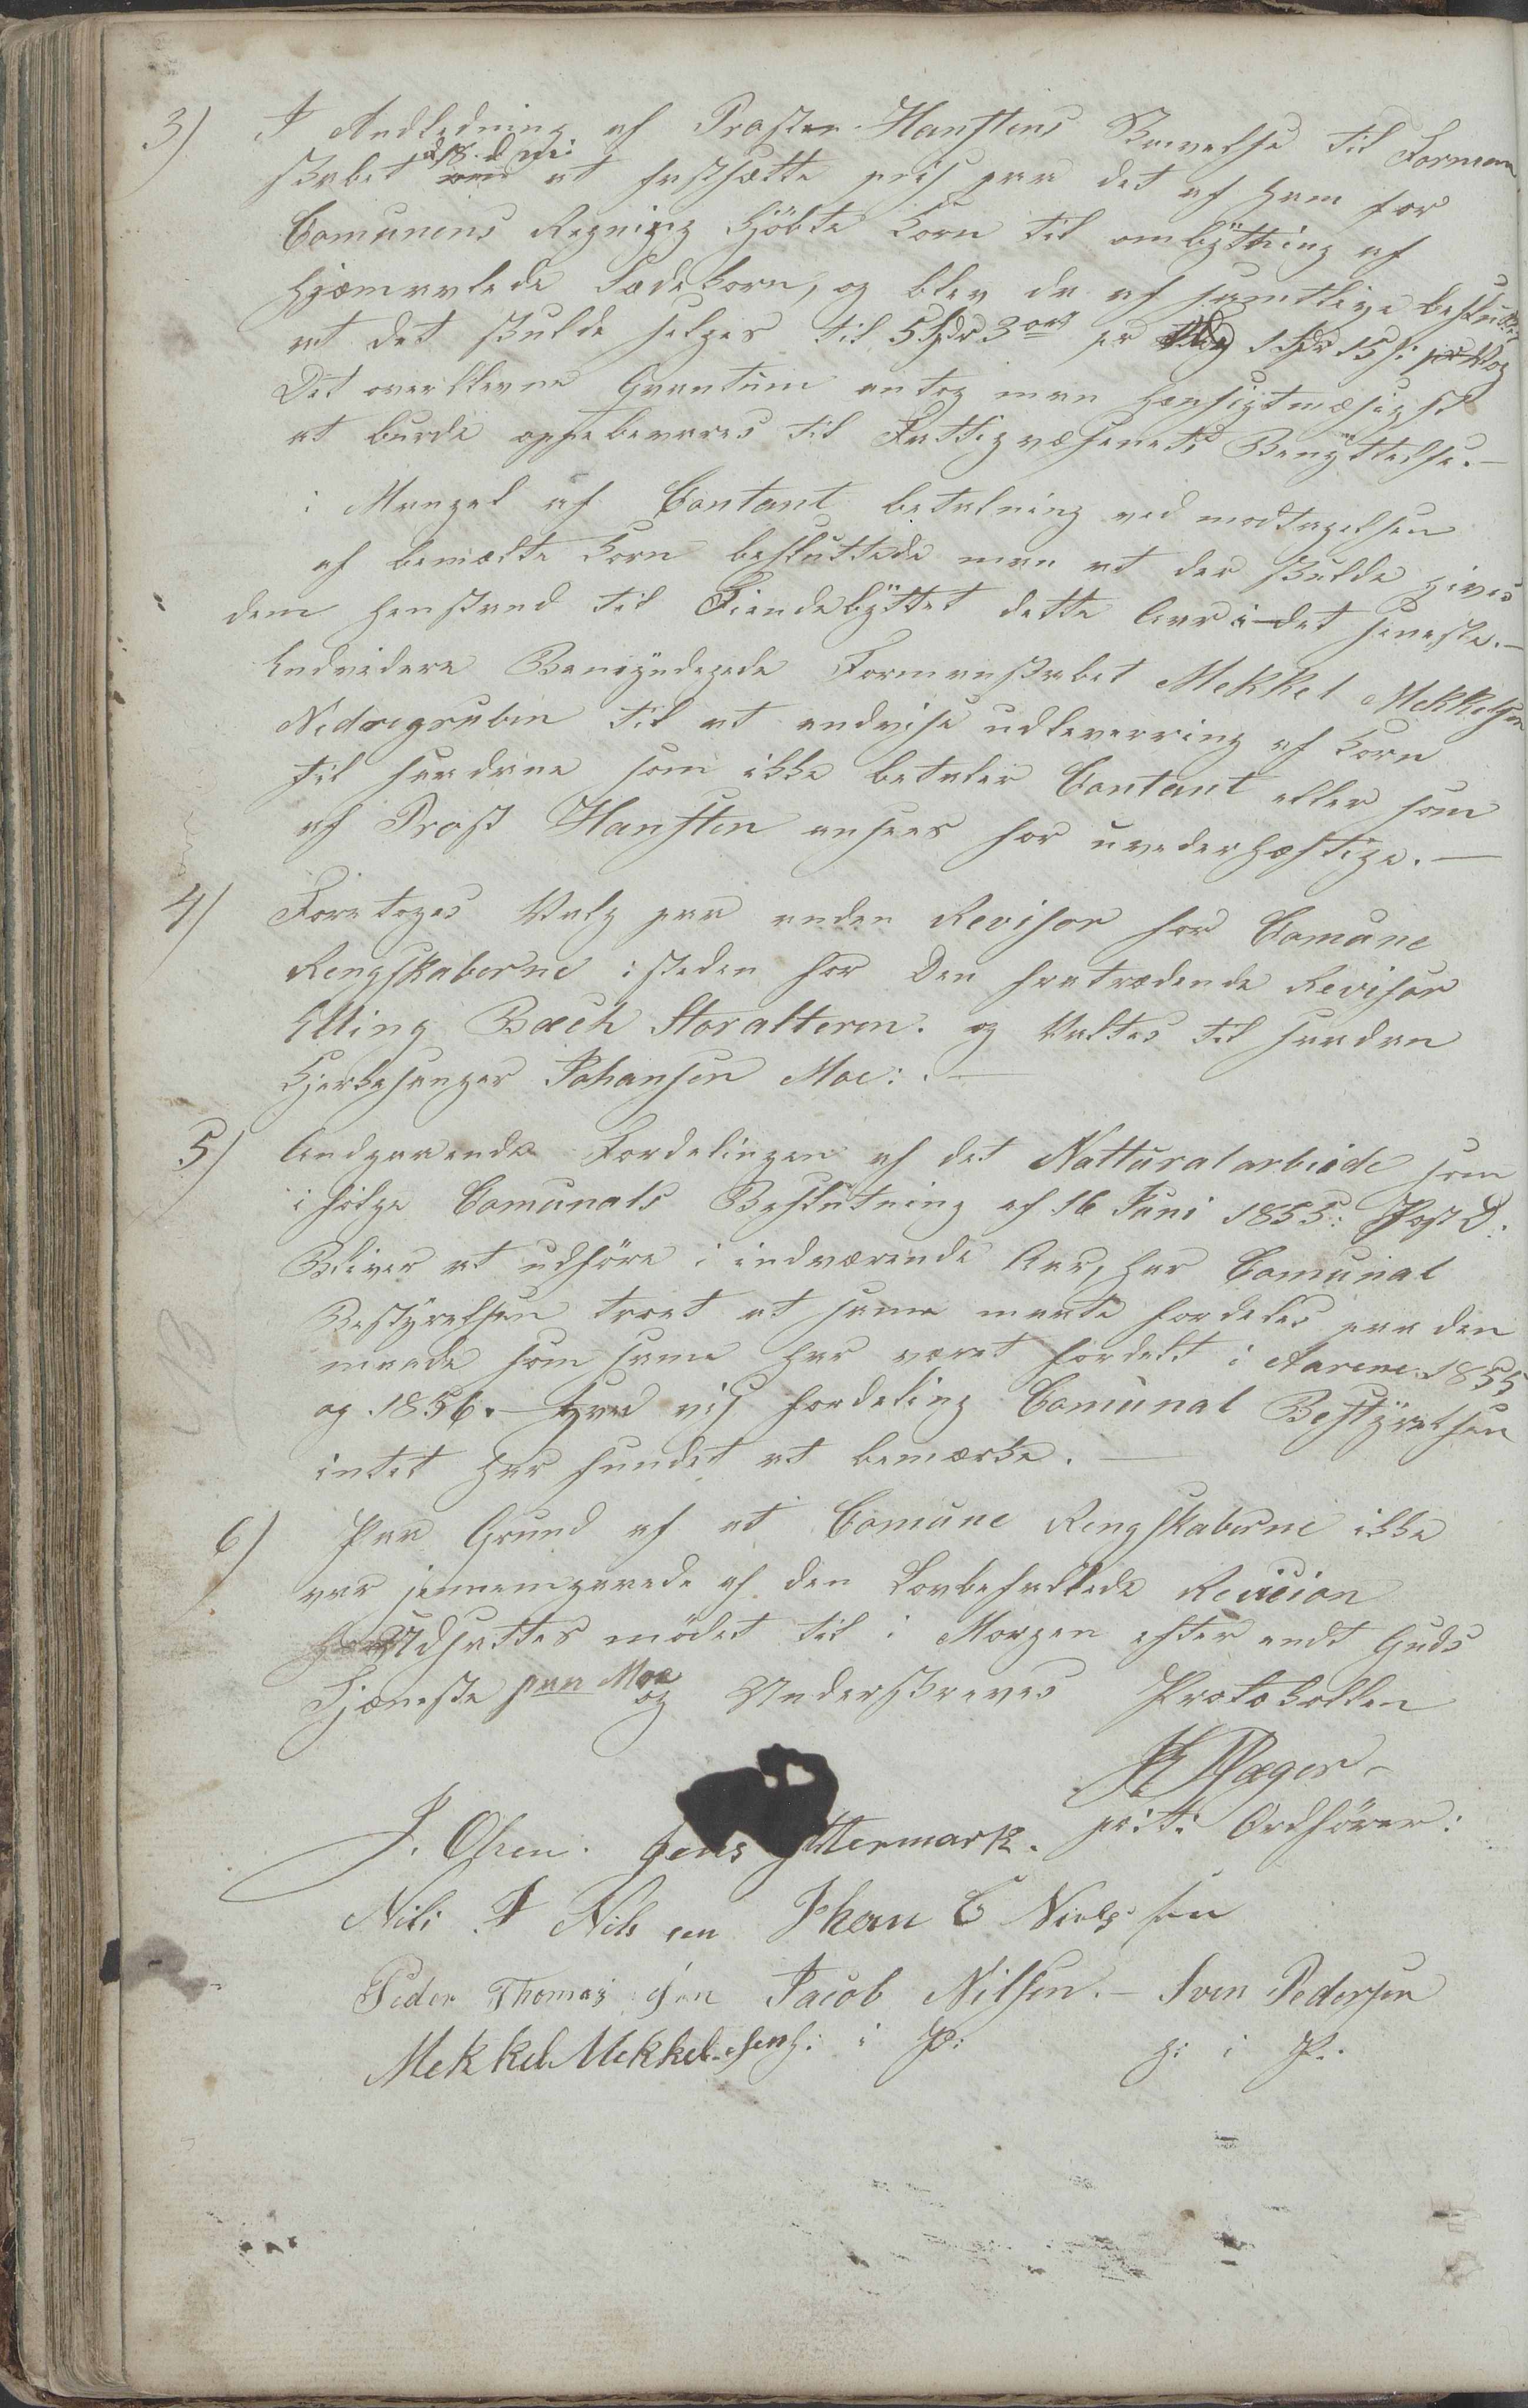 3) I Andledning af Prosten Hanstens Skrivelse til Forman
skabet d 18. d M: at fastsætte pris paa det af ham for
Comunens Regning kjöbte Korn til ombÿtning af
hjemavlede Sædekorn, og blev da af samtlige besluttet
at det skulde selges til 5 Spdr 3 ort pr Tde 1 Spdr 15 s: pr Vog
Det overblevne Qvantum antog man hensigtmæsigst
at burde oppebevares til Fattigvæsenets Benÿttelse. —
i Mangel af Contant betalning ved modtagelsen
af bemælte Korn besluttede man at der skulde gives
dem henstand til Tiendebÿttet dette Aar i det seneste. —
Endvidere Bemÿndigede Formanskabet Mekkel Mekkelsen
Nedregruben til at andvise udleverring af Korn
til saadane som ikke betaler Contant eller som
af Prost Hansten ansees for uvederhæftige. —
4) Foretoges Valg paa anden Revisor for Comune
Rengskaberne isteden for Den fratrædende Revisor
Elling Bæch Storalteren. og Valtes til saadan
Kirkesanger Johansen Moe: . —
5) Andgaaende Fordelingen af det Natturalarbeide som
ifölge Comunals Beslutning af 16 Juni 1855: Post D:
Bliver at udföre i indværende Aar, har Comunal
Bestÿrelsen troet at samme maate fordeles paa den
maade som same har været fordelt i Aarene 1855
og 1856. — Hvad vis fordeling Comunal Bestÿrelsen
intet har fundet at bemærke. —
6) Paa Grund af at Comune Rengskaberne ikke
var jennemgaaede af den Lovbefallede Revieion
Udsattes mödet til i Morgen efter endt Guds
Tjæneste paa Moe og Underskreves Protokollen
Jæger —
J. Olsen. Jens Yttermark. p: t: Ordförer:
Nils I Nils sen Johan C Niels sen
Peder Thomas sen Jacob Nilsen. — Sven Pedersen
Mekkel Mekkel sen h: i P: h: i P: